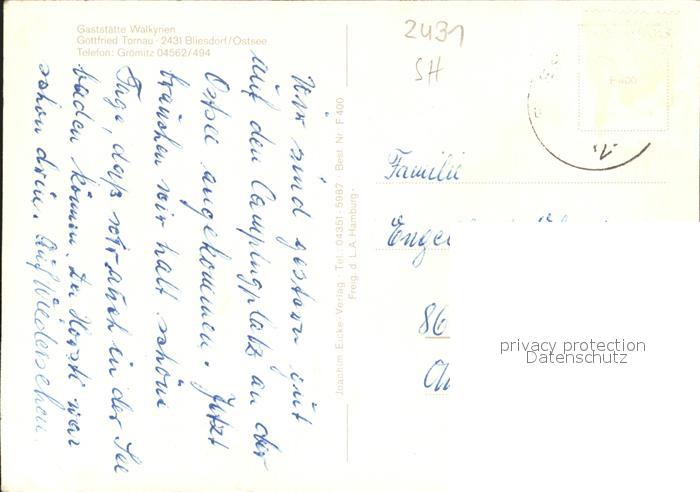 Gaststätte Walkyrien
Gottfried Tornau · 2431 Bliesdorf/Ostsee
Telefon: Grömitz 04562/494
Wir sind gestern mit
auf den Campingplatz an der
Ostsee angekommen. Jetzt
brauchen wir halt schöne
Tage, daß wir auch in der See
baden können. Der Horsti war
schon drin. Auf Wiedersehen.
Joachim Eicke-Verlag · Tel. 04351-5987 · Best. Nr. F 400
Freig. d. L.A. Hamburg ·
2431
SH
F 400
Familie
86
privacy protection
Datenschutz